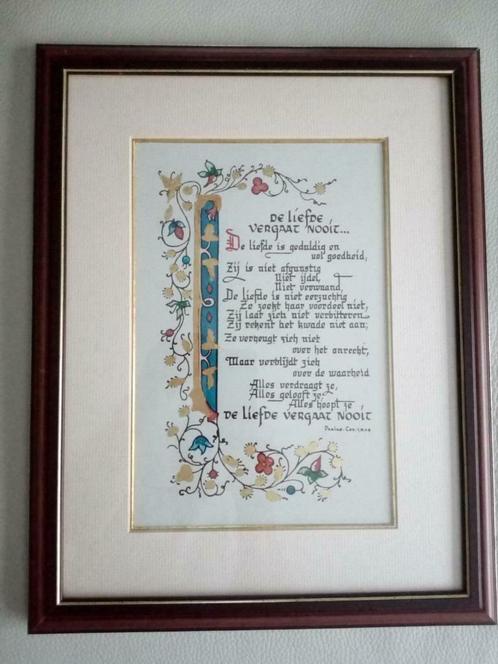 De liefde
vergaat nooit...
De liefde is geduldig en
vol goedheid;
Zij is niet afgunstig
Niet ijdel,
Niet verwaand,
De liefde is niet eerzuchtig
Ze zoekt haar voordeel niet,
Zij laat zich niet verbitteren
Zij rekent het kwade niet aan;
Ze verheugt zich niet
over het onrecht,
Maar verblijdt zich
over de waarheid
Alles verdraagt ze,
Alles gelooft ze,
Alles hoopt ze
De liefde vergaat nooit
Paulus. Cor.